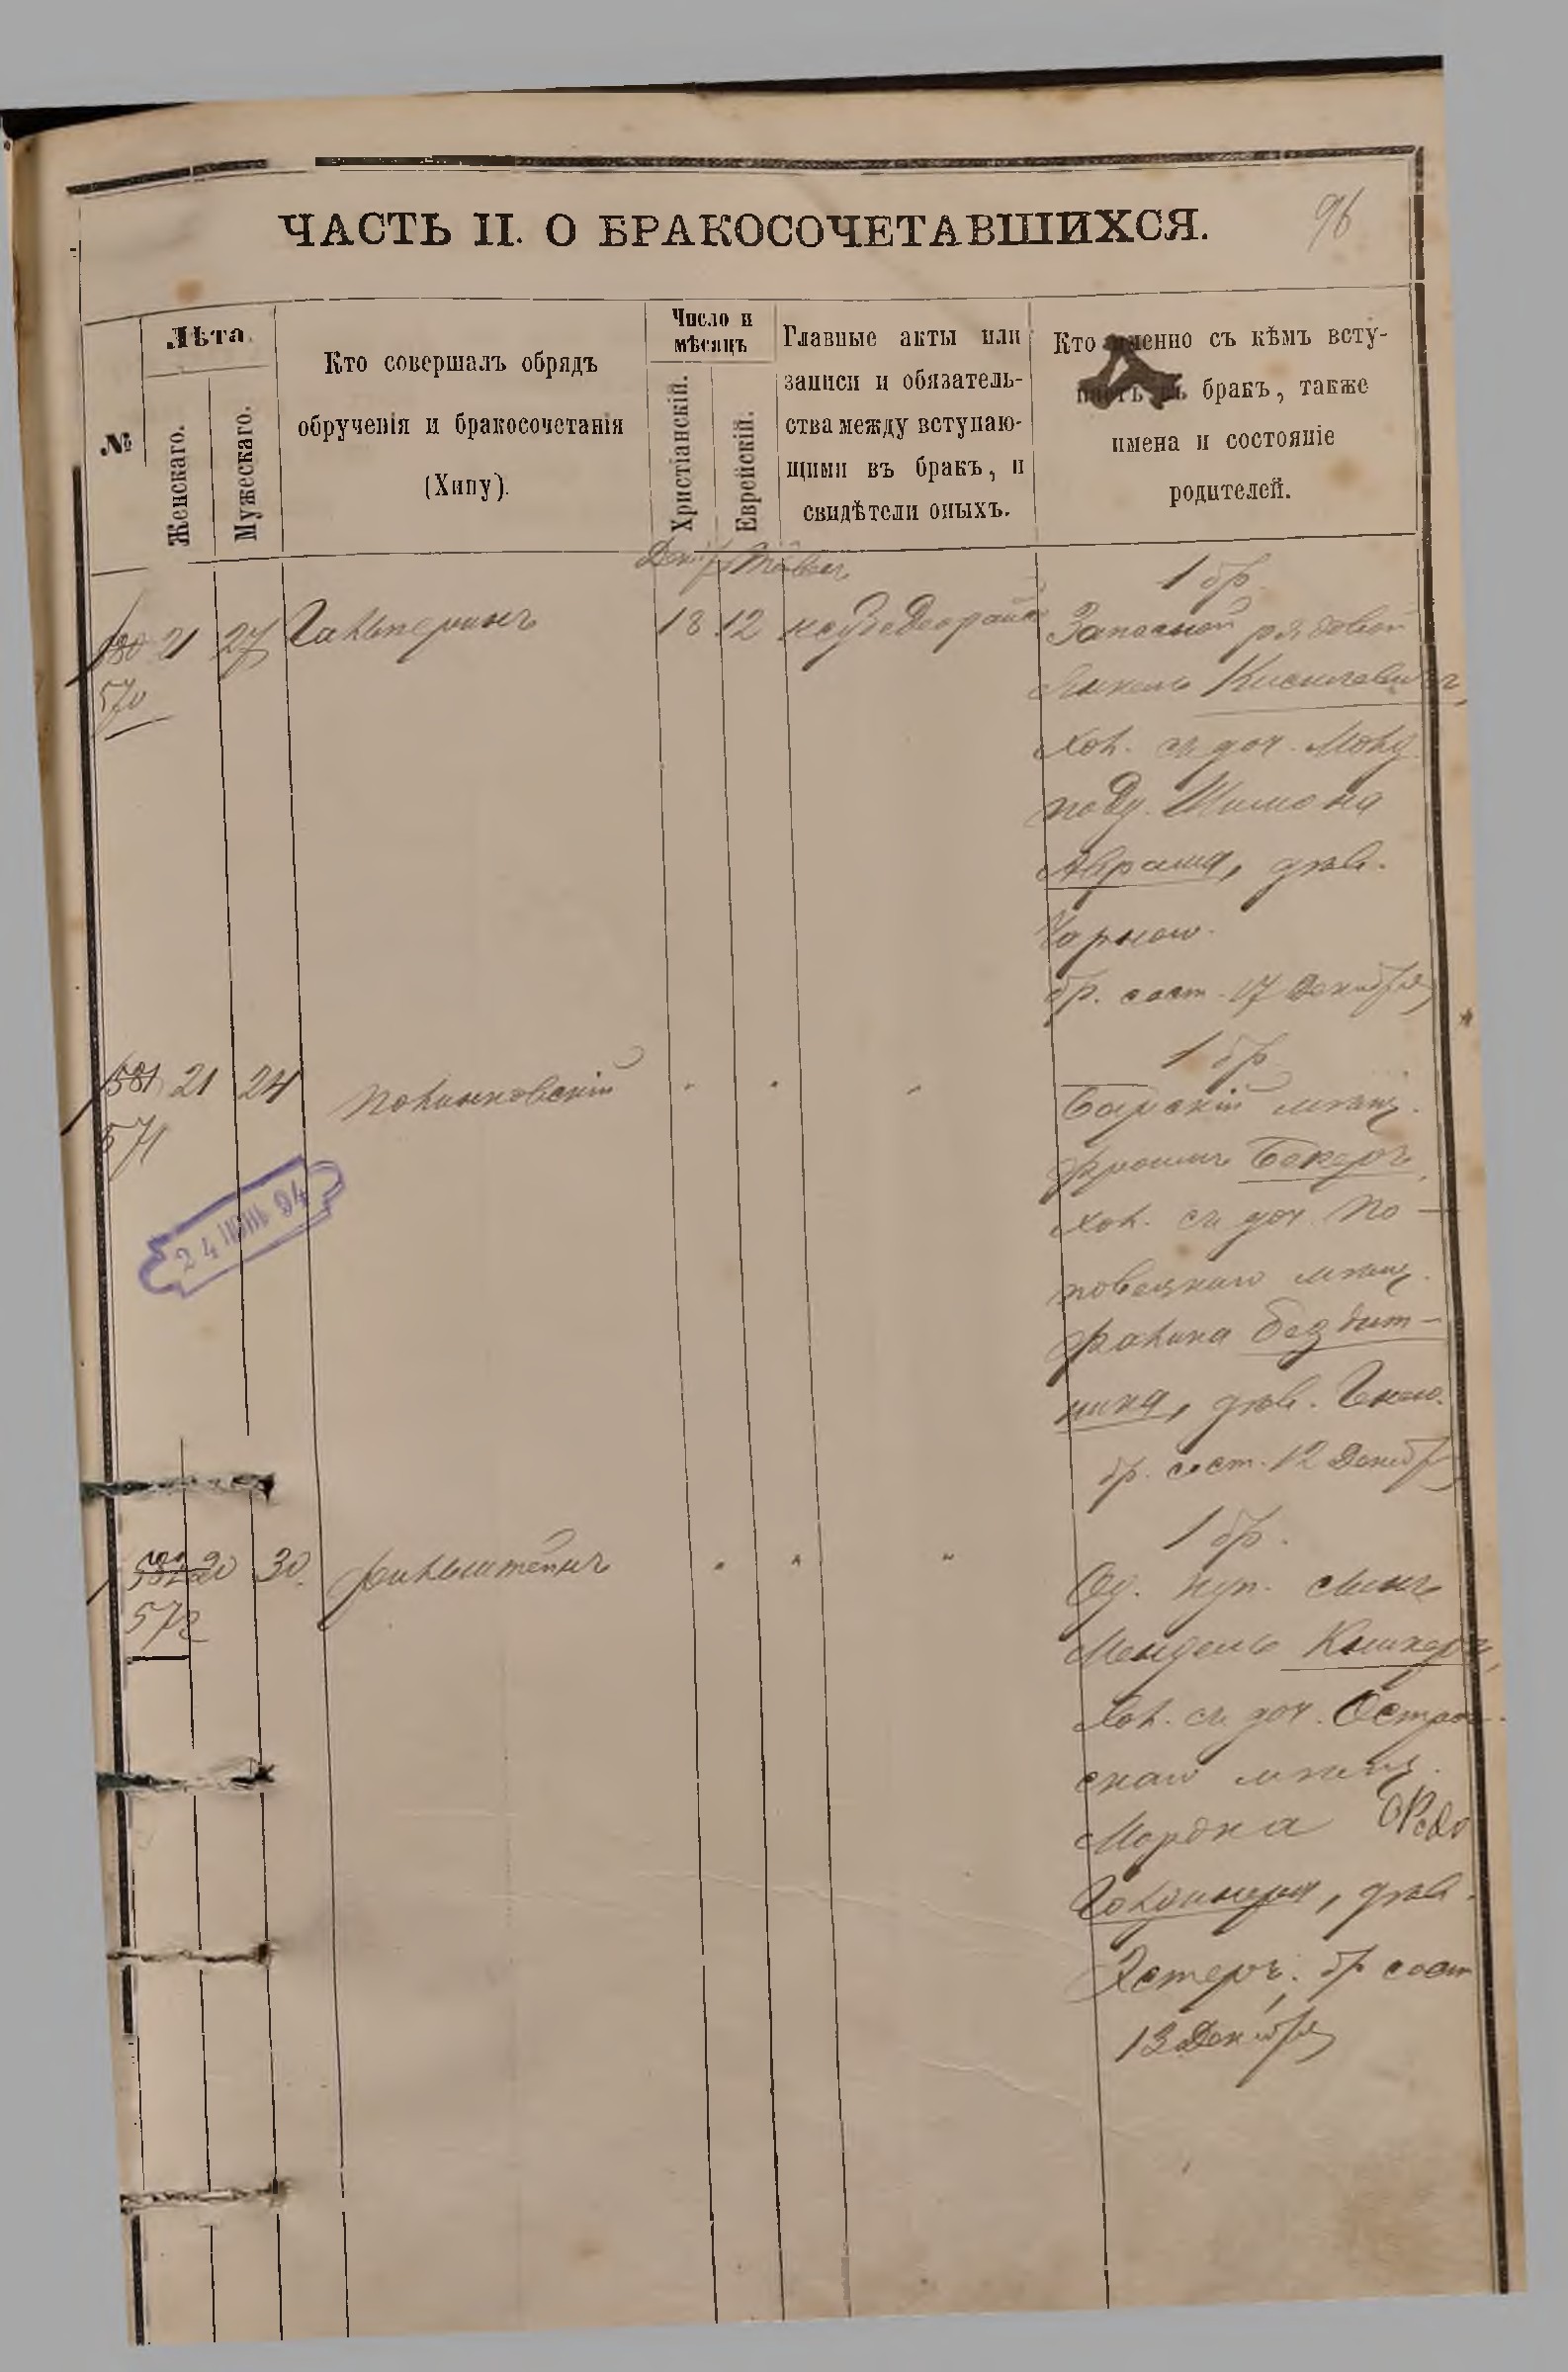 ЧАСТЬ II. О БРАКОСОЧЕТАВШИХСЯ.
96
№
Лѣта.
Женскаго.
Мужескаго.
Кто совершалъ обрядъ
обрученія и бракосочетанія
(Хипу).
Число и
мѣсяцъ
Христіанскій.
Еврейскій.
Главные акты или
записи и обязатель-
ства между вступаю-
щими въ бракъ, и
свидѣтели оныхъ.
Кто именно съ кѣмъ всту-
паетъ въ бракъ, также
имена и состояніе
родителей.
580 21 27 Гальперинъ 18 12
570
1 бр.
Запасной рядовой
Янкель Кисилевичъ,
Хол. съ доч.
Шимона
Абрама, дѣв.
Чарною.
бр. сост. 17 Декабря
581 21 24 Полинковскій " " "
571
24 94
1 бр.
Барскій мѣщ.
Фроимъ Бекеръ,
Хол. съ доч. По-
повецкаго мѣщ.
Фалика Бездит-
ника, дѣв. Генею.
бр. сост. 12 Декабр
582 20 30 Финкельштейнъ " " "
572
1 бр.
Од. куп. сынъ
Мендель
Хол. съ доч. Острож-
скаго мѣщ.
Мордка
Гольдинера, дѣв.
Эстеръ. бр сост
13 Декабря